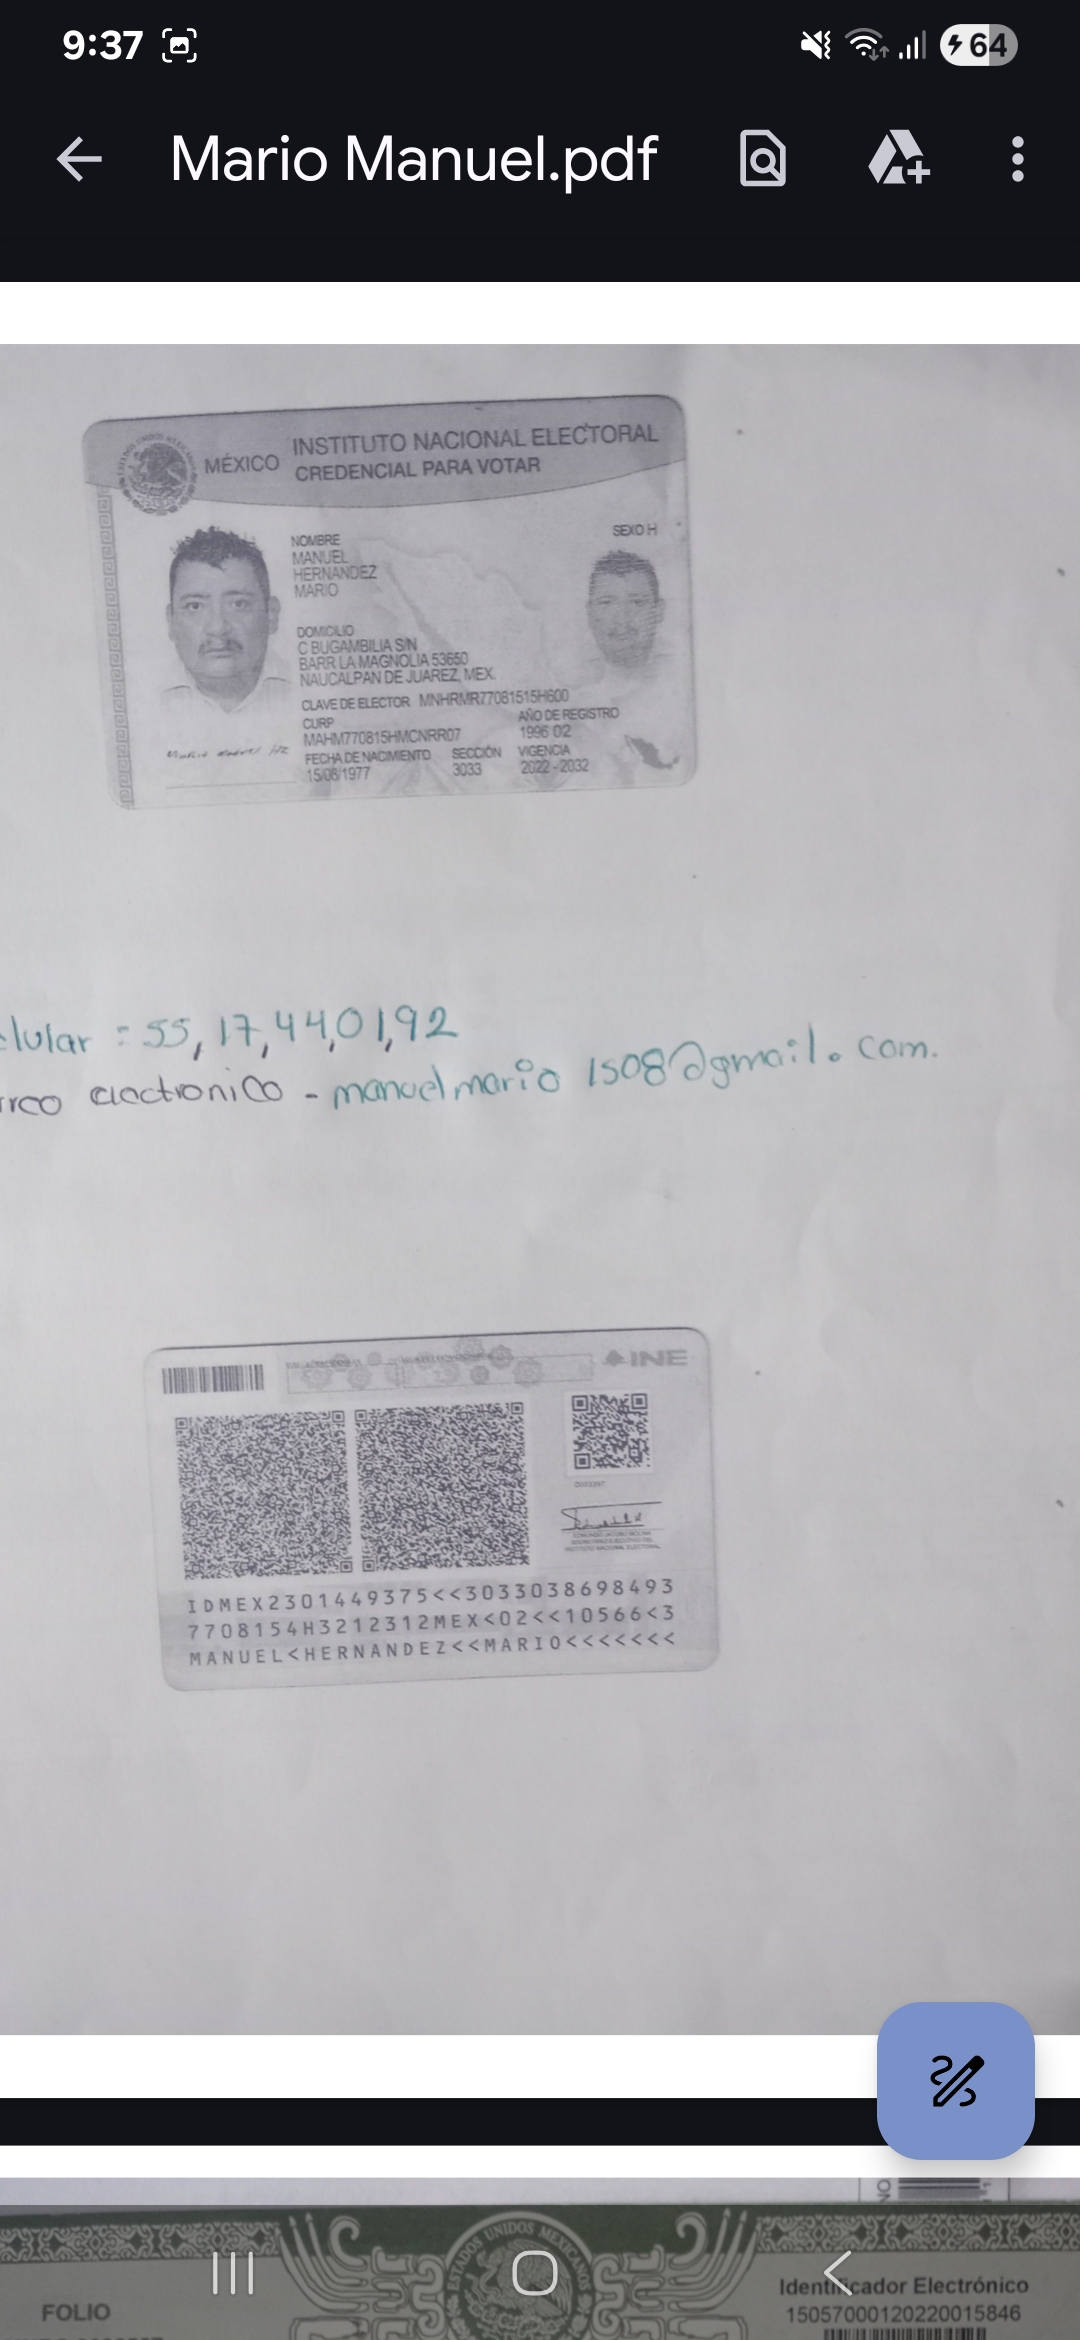 9:37
64
Mario Manuel.pdf
MÉXICO
INSTITUTO NACIONAL ELECTORAL
CREDENCIAL PARA VOTAR
SEXO H
NOMBRE
MANUEL
HERNANDEZ
MARIO
DOMICILIO
C BUGAMBILIA S/N
BARR LA MAGNOLIA 53650
NAUCALPAN DE JUAREZ, MEX.
CLAVE DE ELECTOR MNHRMR77081515H600
CURP
MAHM770815HMCNRR07
AÑO DE REGISTRO
1996 02
FECHA DE NACIMIENTO
15/08/1977
SECCIÓN
3033
VIGENCIA
2022 - 2032
elular : 55, 17,44,01,92
rreo electronico - manuel mario 1508@gmail. com.
INE
IDMEX2301449375<<3033038698493
7708154H3212312MEX<02<<10566<3
MANUEL<HERNANDEZ<<MARIO<<<<<<<
UNIDOS MEXICANOS
FOLIO
Identificador Electrónico
15057000120220015846